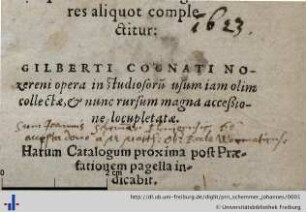 res aliquot comple
ctitur:
1623
GILBERTI COGNATI NO-
zereni opera in studiosorū usum iam olim
collectæ, & nunc rursum magna accessio-
ne locupletatæ.
Sum Joannis
Harum Catalogum proxima post Præ-
fationem pagella in-
dicabit.
0 2 cm
http://dl.ub.uni-freiburg.de/diglit/pro_schemmer_johannes/0001
© Universitätsbibliothek Freiburg